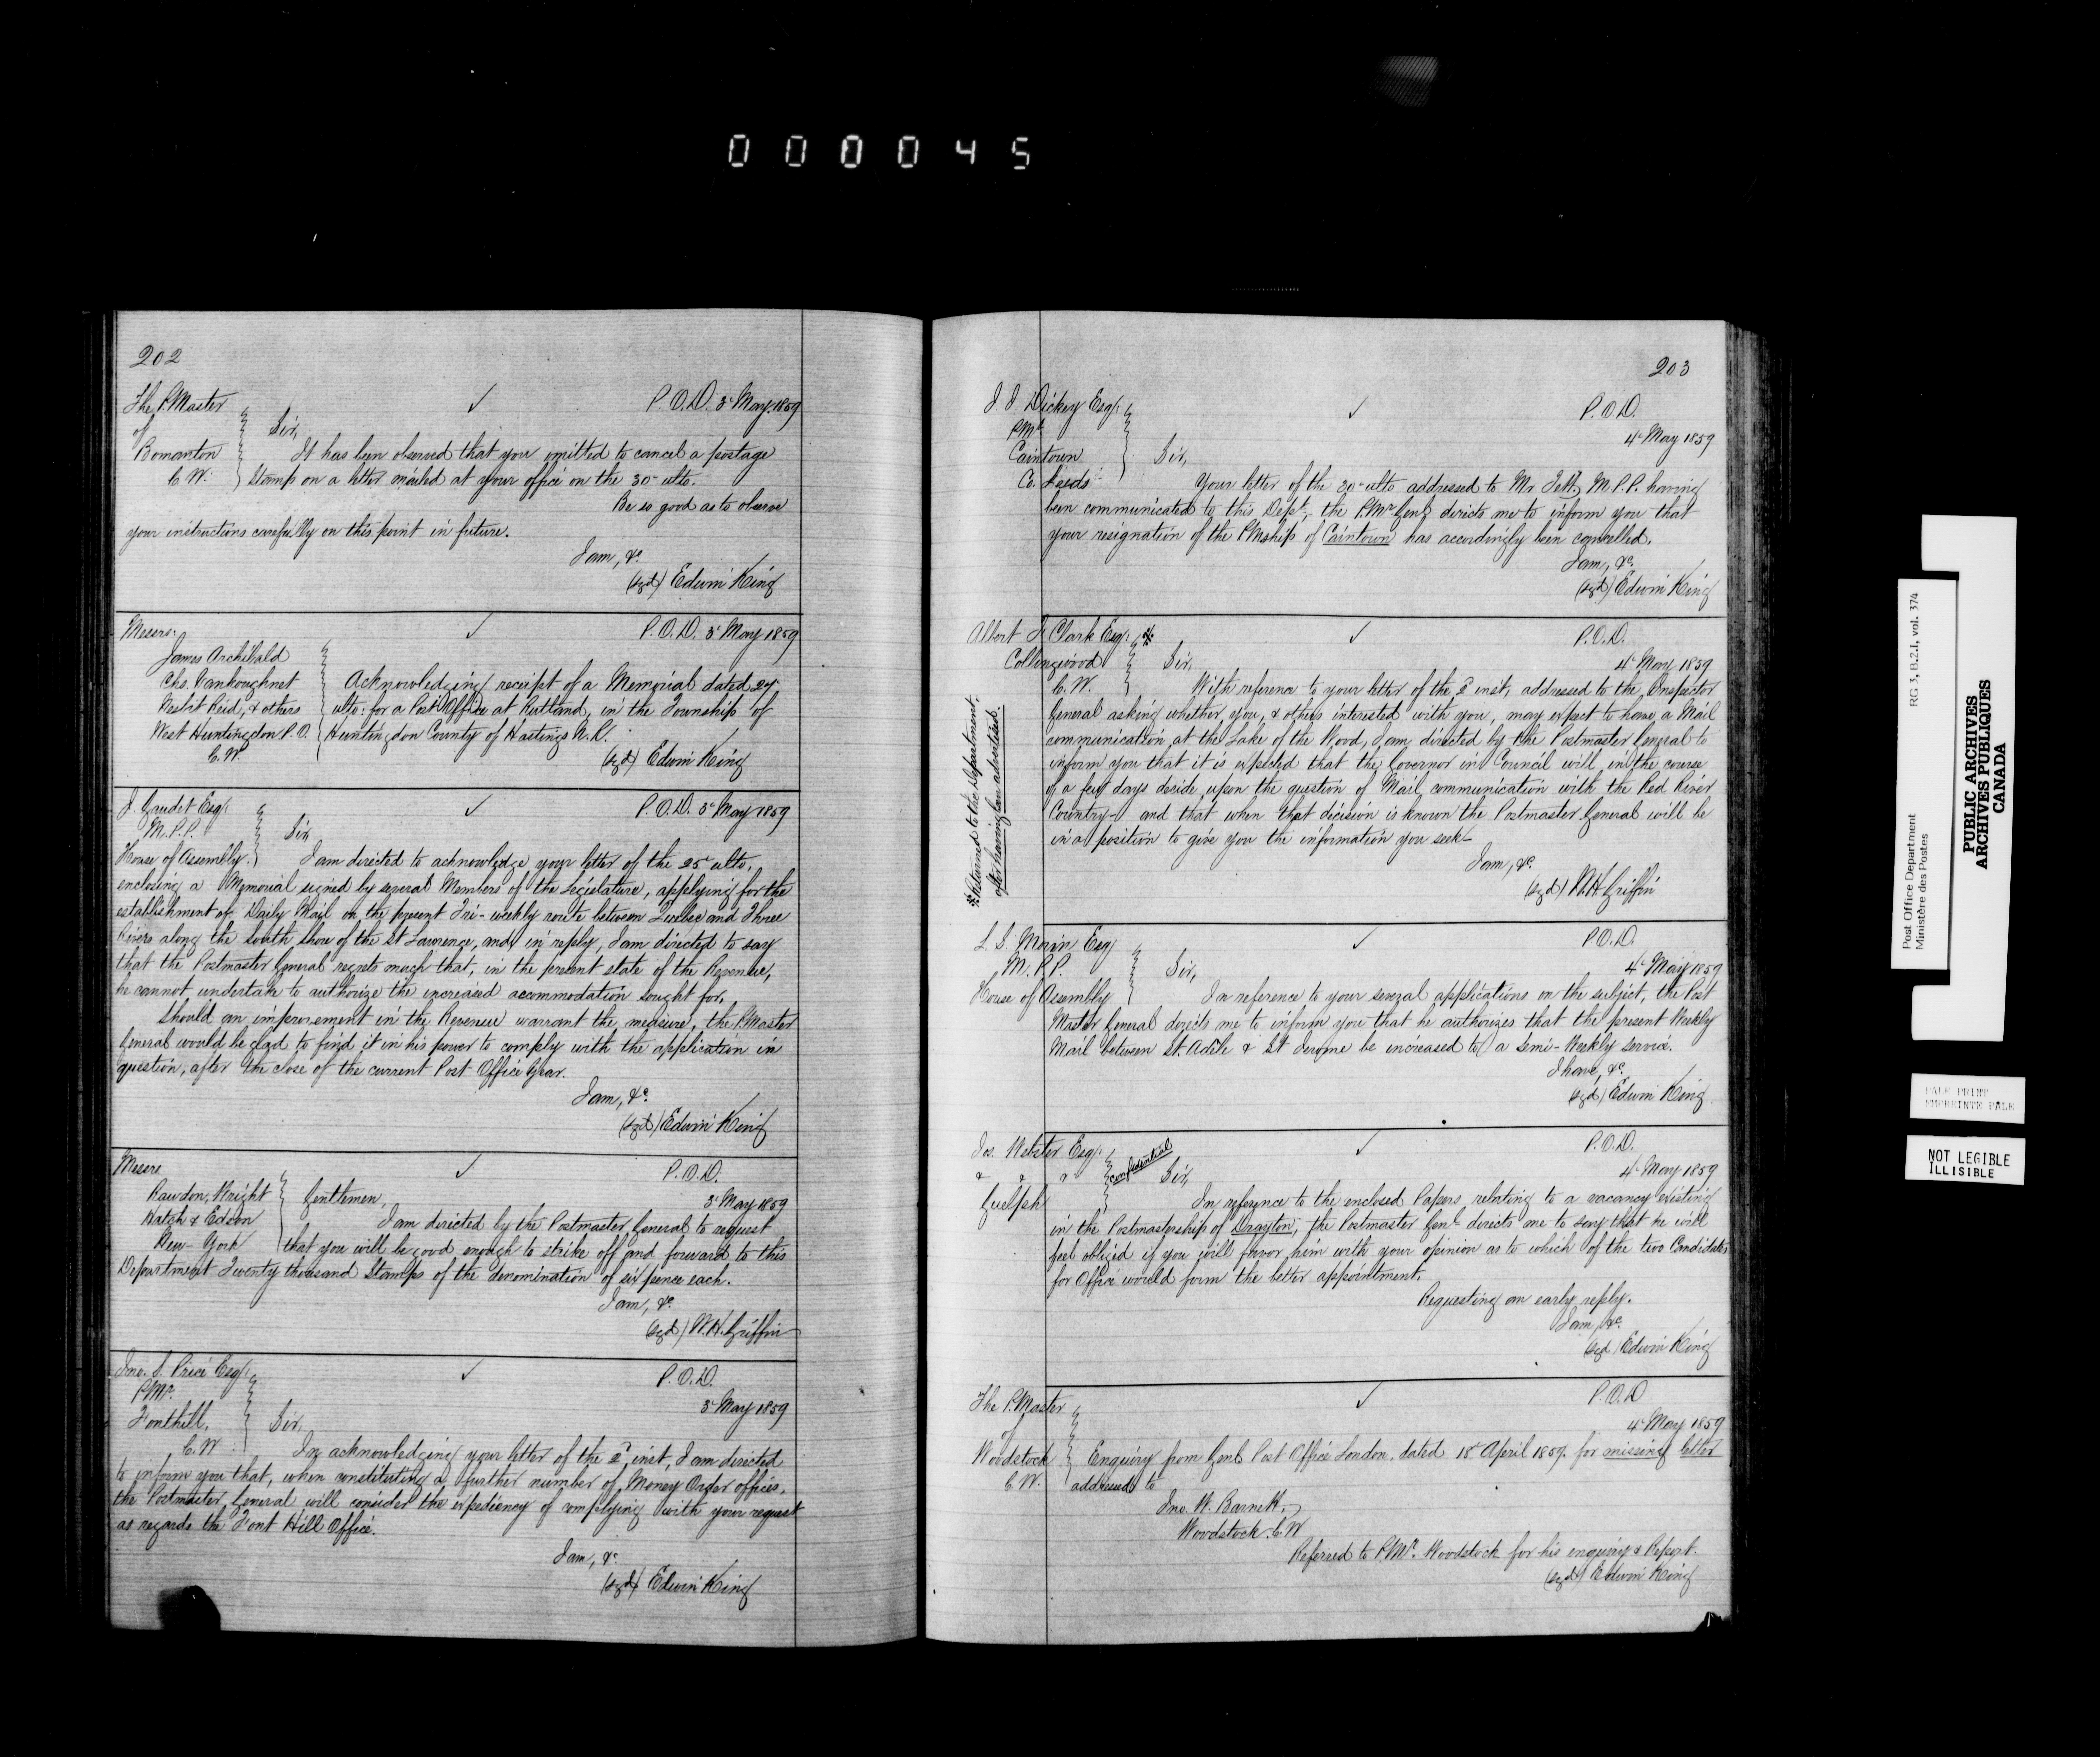 000045
202
The P.Master
of
Bomanton
C.W.
✓
P.O.D. 3d May 1859
Sir,
It has been observed that you omitted to cancel a postage
Stamp on a letter mailed at your office on the 30th ulto.
Be so good as to observe
your instructions carefully on this point in future.
I am, &c.
(sgd) Edwin King
Messrs.
James Archibald
Chs. Vankoughnet
Nesbit Reid, & others
West Huntingdon P.O.
C.W.
✓
P.O.D. 3d May 1859
Acknowledging receipt of a Memorial dated 27
ulto: for a Post Office at Rutland, in the Township of
Huntingdon County of Hastings N.R.
(sgd) Edwin King
J. Gaudet Esqr.
M.P.P.
House of Assembly.
✓
P.O.D. 3d May 1859
Sir,
I am directed to acknowledge your letter of the 25th ulto,
enclosing a Memorial signed by several Members of the Legislature, applying for the
establishment of Daily Mail on the present Tri-weekly route between Quebec and Three
Rivers along the South Shore of the St Lawrence, and, in reply, I am directed to say
that the Postmaster General regrets much that, in the present state of the Revenue,
he cannot undertake to authorize the increased accommodation sought for.
Should an improvement in the Revenue warrant the measure, the P.Master
General would be glad to find it in his power to comply with the application in
question, after the close of the current Post Office Year.
I am, &c.
(sgd) Edwin King
Messrs
Rawdon, Wright
Hatch & Edson
New-York
✓
P.O.D.
3d May 1859
Gentlemen,
I am directed by the Postmaster General to request
that you will be good enough to strike off and forward to this
Department Twenty thousand Stamps of the denomination of six pence each.
I am, &c.
(sgd) W.H. Griffin
Jno. S. Price Esqr.
PMr.
Fonthill,
C.W.
✓
P.O.D.
3d May 1859
Sir,
In acknowledging your letter of the 2d inst, I am directed
to inform you that, when constituting a further number of Money Order offices,
the Postmaster General will consider the expediency of complying with your request
as regards the Font Hill Office.
I am, &c.
(sgd) Edwin King
203
J J Dickey Esqr.
PMr
Caintown
Co. Leeds
✓
P.O.D.
4th May 1859
Sir,
Your letter of the 30th ulto addressed to Mr Jett, M.P.P. having
been communicated to this Dept, the P.Mr Genl directs me to inform you that
your resignation of the PMship of Caintown has accordingly been cancelled.
I am, &c.
(sgd) Edwin King
Albert J. Clark Esqr. *
Collingwood
C.W.
✓
P.O.D.
4th May 1859
Sir,
With reference to your letter of the 2d inst, addressed to the Inspector
General asking whether you, & others interested with you, may expect to have a Mail
communication at the Lake of the Wood, I am directed by the Postmaster General to
inform you that it is expected that the Governor in Council will in the course
of a few days decide upon the question of Mail communication with the Red River
Country- and that when that decision is known the Postmaster General will be
in a position to give you the information you seek-
I am, &c.
(sgd) W.H. Griffin
* Returned to the Department,
after having been advertised.
L. S. Morin Esqr
M.P.P.
House of Assembly
✓
P.O.D.
4th May 1859
Sir,
In reference to your several applications on the subject, the Post
Master General directs me to inform you that he authorizes that the present Weekly
Mail between St. Adèle & St Jerome be increased to a Semi-Weekly service.
I have, &c.
(sgd) Edwin King
Jas. Webster Esqr.
& & &
Guelph
confidential
✓
P.O.D.
4th May 1859
Sir,
In reference to the enclosed Papers relating to a vacancy existing
in the Postmastership of Drayton, the Postmaster Genl directs me to say that he will
feel obliged if you will favor him with your opinion as to which of the two Candidates
for Office would form the better appointment.
Requesting an early reply.
I am, &c.
(sgd) Edwin King
The P.Master
of
Woodstock
C.W.
✓
P.O.D
4th May 1859
Enquiry from Genl Post Office London, dated 18th April 1859 for missing letter
addressed to
Jno. W. Barnett,
Woodstock C.W
Referred to P.Mr. Woodstock for his enquiry & Report.
(sgd) Edwin King
Post Office Department
Ministère des Postes
RG 3, B.2.1, vol. 374
PUBLIC ARCHIVES
ARCHIVES PUBLIQUES
CANADA
PALE PRINT
EMPREINTE PALE
NOT LEGIBLE
ILLISIBLE